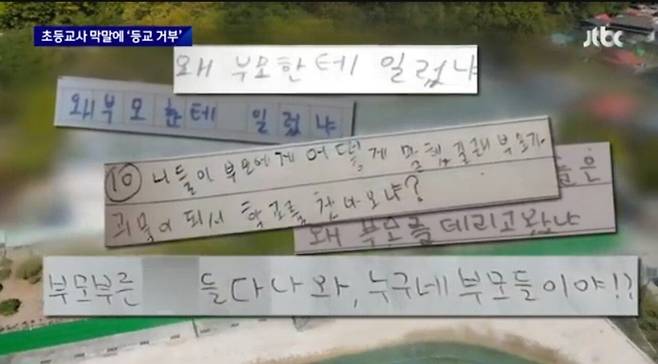 초등교사 막말에 '등교 거부'
jtbc
왜 부모한테 일렀냐
왜부모한테 일렀냐
⑩ 니들이 부모에게 어떻게 말했길래 부모가
괴물이 되서 학교를 찾아오냐?
들은
왜 부모를 데리고왔냐
부모부른 들 다 나와, 누구네 부모들이야!?